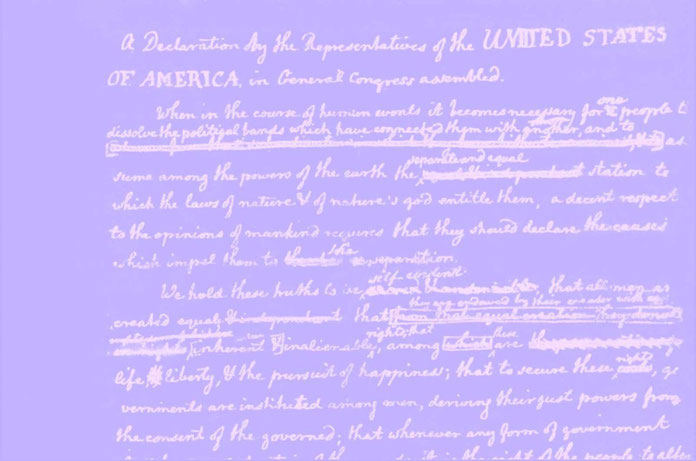 A Declaration by the Representatives of the UNITED STATES
OF AMERICA, in General Congress assembled.
When in the course of human events it becomes necessary for one people to
dissolve the political bands which have connected them with another, and to
as
separate and equal
sume among the powers of the earth the station to
which the laws of nature & of nature's god entitle them, a decent respect
to the opinions of mankind requires that they should declare the causes
which impel them to the separation.
self-evident
We hold these truths to be that all men are
they are endowed by their creator with
created equal that from that equal creation they
rights; that these
inherent & inalienable, among which are
life & liberty, & the pursuit of happiness; that to secure these rights, go
vernments are instituted among men, deriving their just powers from
the consent of the governed; that whenever any form of government
it is the right of the people to alter